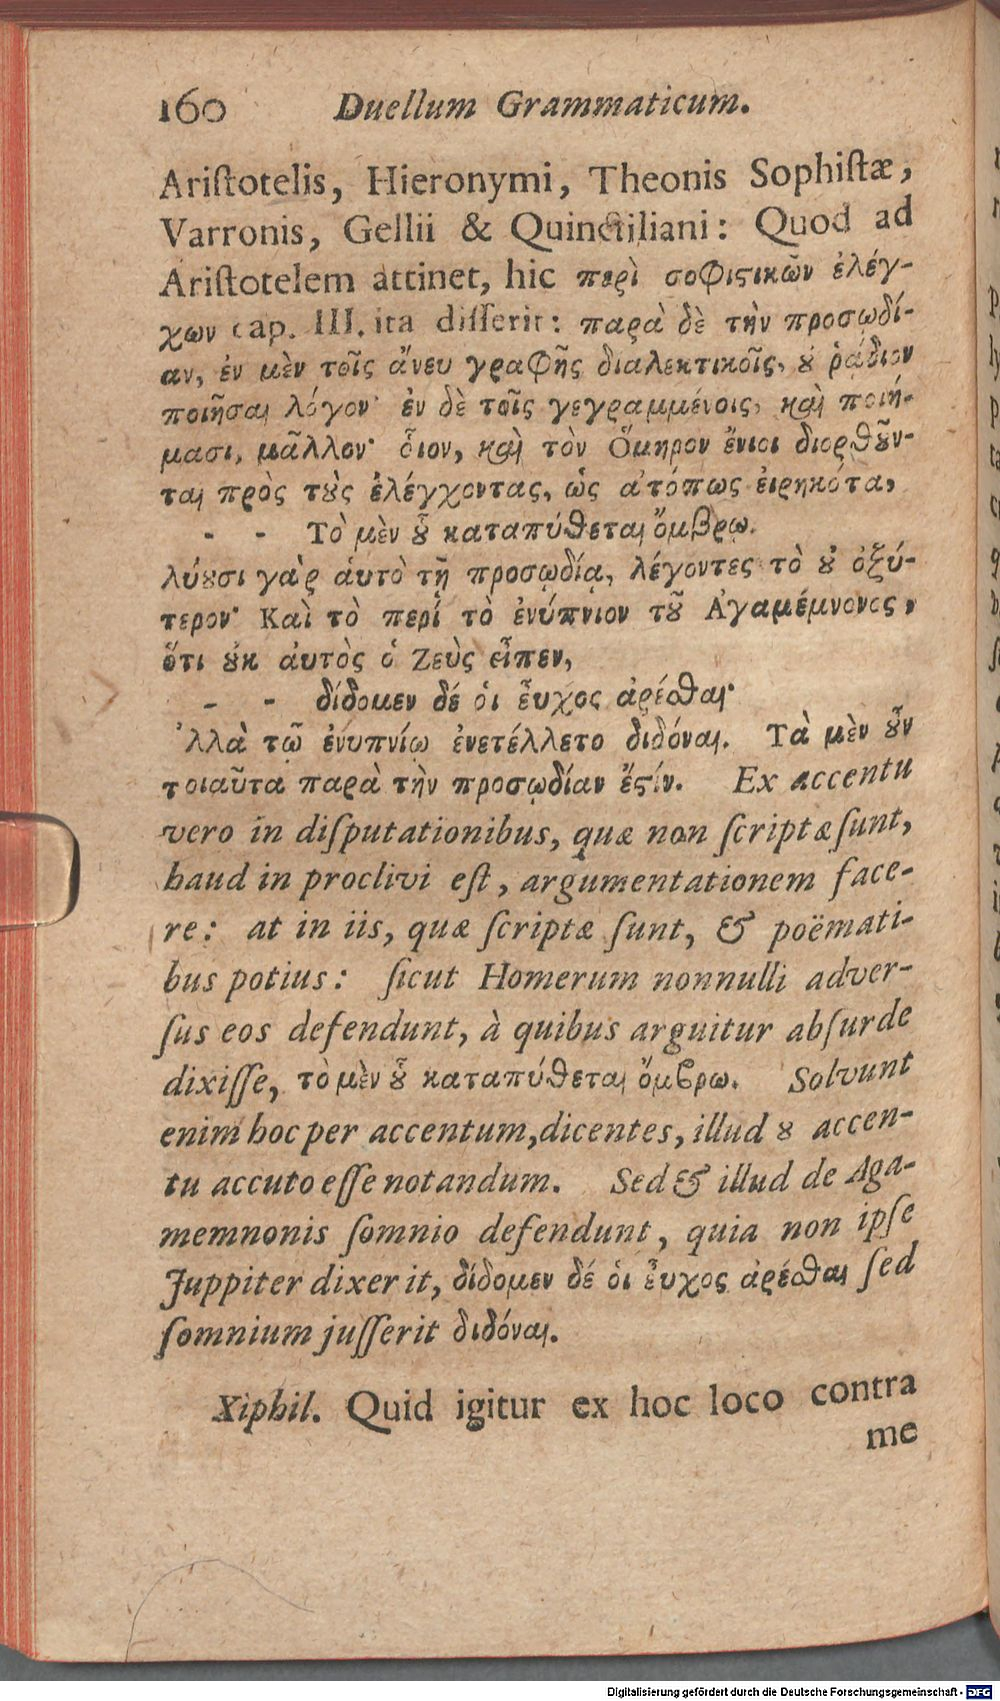 160 Duellum Grammaticum.
Ariſtotelis, Hieronymi, Theonis Sophiſtæ,
Varronis, Gellii & Quinctiliani: Quod ad
Ariſtotelem attinet, hic περὶ σοφιϛικῶν ἐλέγ-
χων cap. III. ita diſſerit: παρὰ δὲ τὴν προσῳδί-
αν, ἐν μὲν τοῖς ἄνευ γραφῆς διαλεκτικοῖς, ȣ ῥᾴδιον
ποιῆσαι λόγον· ἐν δὲ τοῖς γεγραμμένοις, καὶ ποιή-
μασι, μᾶλλον· ὅιον, καὶ τὸν Ὅμηρον ἔνιοι διορθȣ͂ν-
ται πρὸς τȣ̀ς ἐλέγχοντας, ὡς ἀτόπως ἐιρηκότα,
- - Τὸ μὲν ȣ̓͂ καταπύθεται ὄμβρῳ.
λύȣσι γὰρ ἀυτὸ τῇ προσῳδίᾳ, λέγοντες τὸ ȣ̓ ὀξύ-
τερον· Καὶ τὸ περὶ τὸ ἐνύπνιον τȣ͂ Ἀγαμέμνονος,
ὅτι ȣ̓κ ἀυτὸς ὁ Ζεὺς εἶπεν,
- - δίδομεν δέ ὁι ἦυχος ἀρέσθαι·
Ἀλλὰ τῷ ἐνυπνίῳ ἐνετέλλετο διδόναι. Τὰ μὲν ȣ̓͂ν
τοιαῦτα παρὰ τὴν προσῳδίαν ἔϛίν. Ex accentu
vero in diſputationibus, quæ non ſcriptæ ſunt,
haud in proclivi eſt, argumentationem face-
re: at in iis, quæ ſcriptæ ſunt, & poëmati-
bus potius: ſicut Homerum nonnulli adver-
ſus eos defendunt, à quibus arguitur abſurde
dixiſſe, τὸ μὲν ȣ̓͂ καταπύθεται ὄμβρω. Solvunt
enim hoc per accentum, dicentes, illud ȣ accen-
tu accuto eſſe notandum. Sed & illud de Aga-
memnonis ſomnio defendunt, quia non ipſe
Juppiter dixerit, δίδομεν δέ ὁι ἦυχος ἀρέσθαι ſed
ſomnium juſſerit διδόναι.
Xiphil. Quid igitur ex hoc loco contra
me
Digitalisierung gefördert durch die Deutsche Forschungsgemeinschaft - DFG